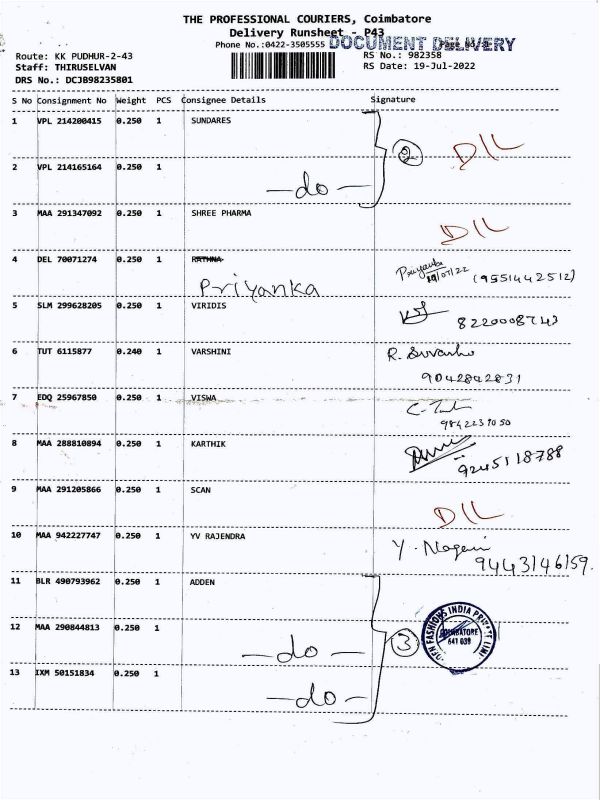 THE PROFESSIONAL COURIERS, Coimbatore
Delivery Runsheet - P43
Phone No.:0422-3505555 DOCUMENT DELIVERY
Route: KK PUDHUR-2-43 RS No.: 982358
Staff: THIRUSELVAN RS Date: 19-Jul-2022
DRS No.: DCJB98235801
S No Consignment No Weight PCS Consignee Details Signature
1 VPL 214200415 0.250 1 SUNDARES
2 D/L
2 VPL 214165164 0.250 1
-do-
3 MAA 291347092 0.250 1 SHREE PHARMA
D/L
4 DEL 70071274 0.250 1 RATHNA
Priyanka Priyanka 19/07/22 (9551442512)
5 SLM 299628205 0.250 1 VIRIDIS
8220008743
6 TUT 6115877 0.240 1 VARSHINI
9042842831
7 EDQ 25967850 0.250 1 VISWA
9842239050
8 MAA 288810894 0.250 1 KARTHIK
9245118788
9 MAA 291205866 0.250 1 SCAN
D/L
10 MAA 942227747 0.250 1 YV RAJENDRA
Y. Nageni
9443146159.
11 BLR 490793962 0.250 1 ADDEN
12 MAA 290844813 0.250 1
-do- 3
FASHIONS INDIA PRIVATE LIMI
COIMBATORE
641 038
13 IXM 50151834 0.250 1
-do-